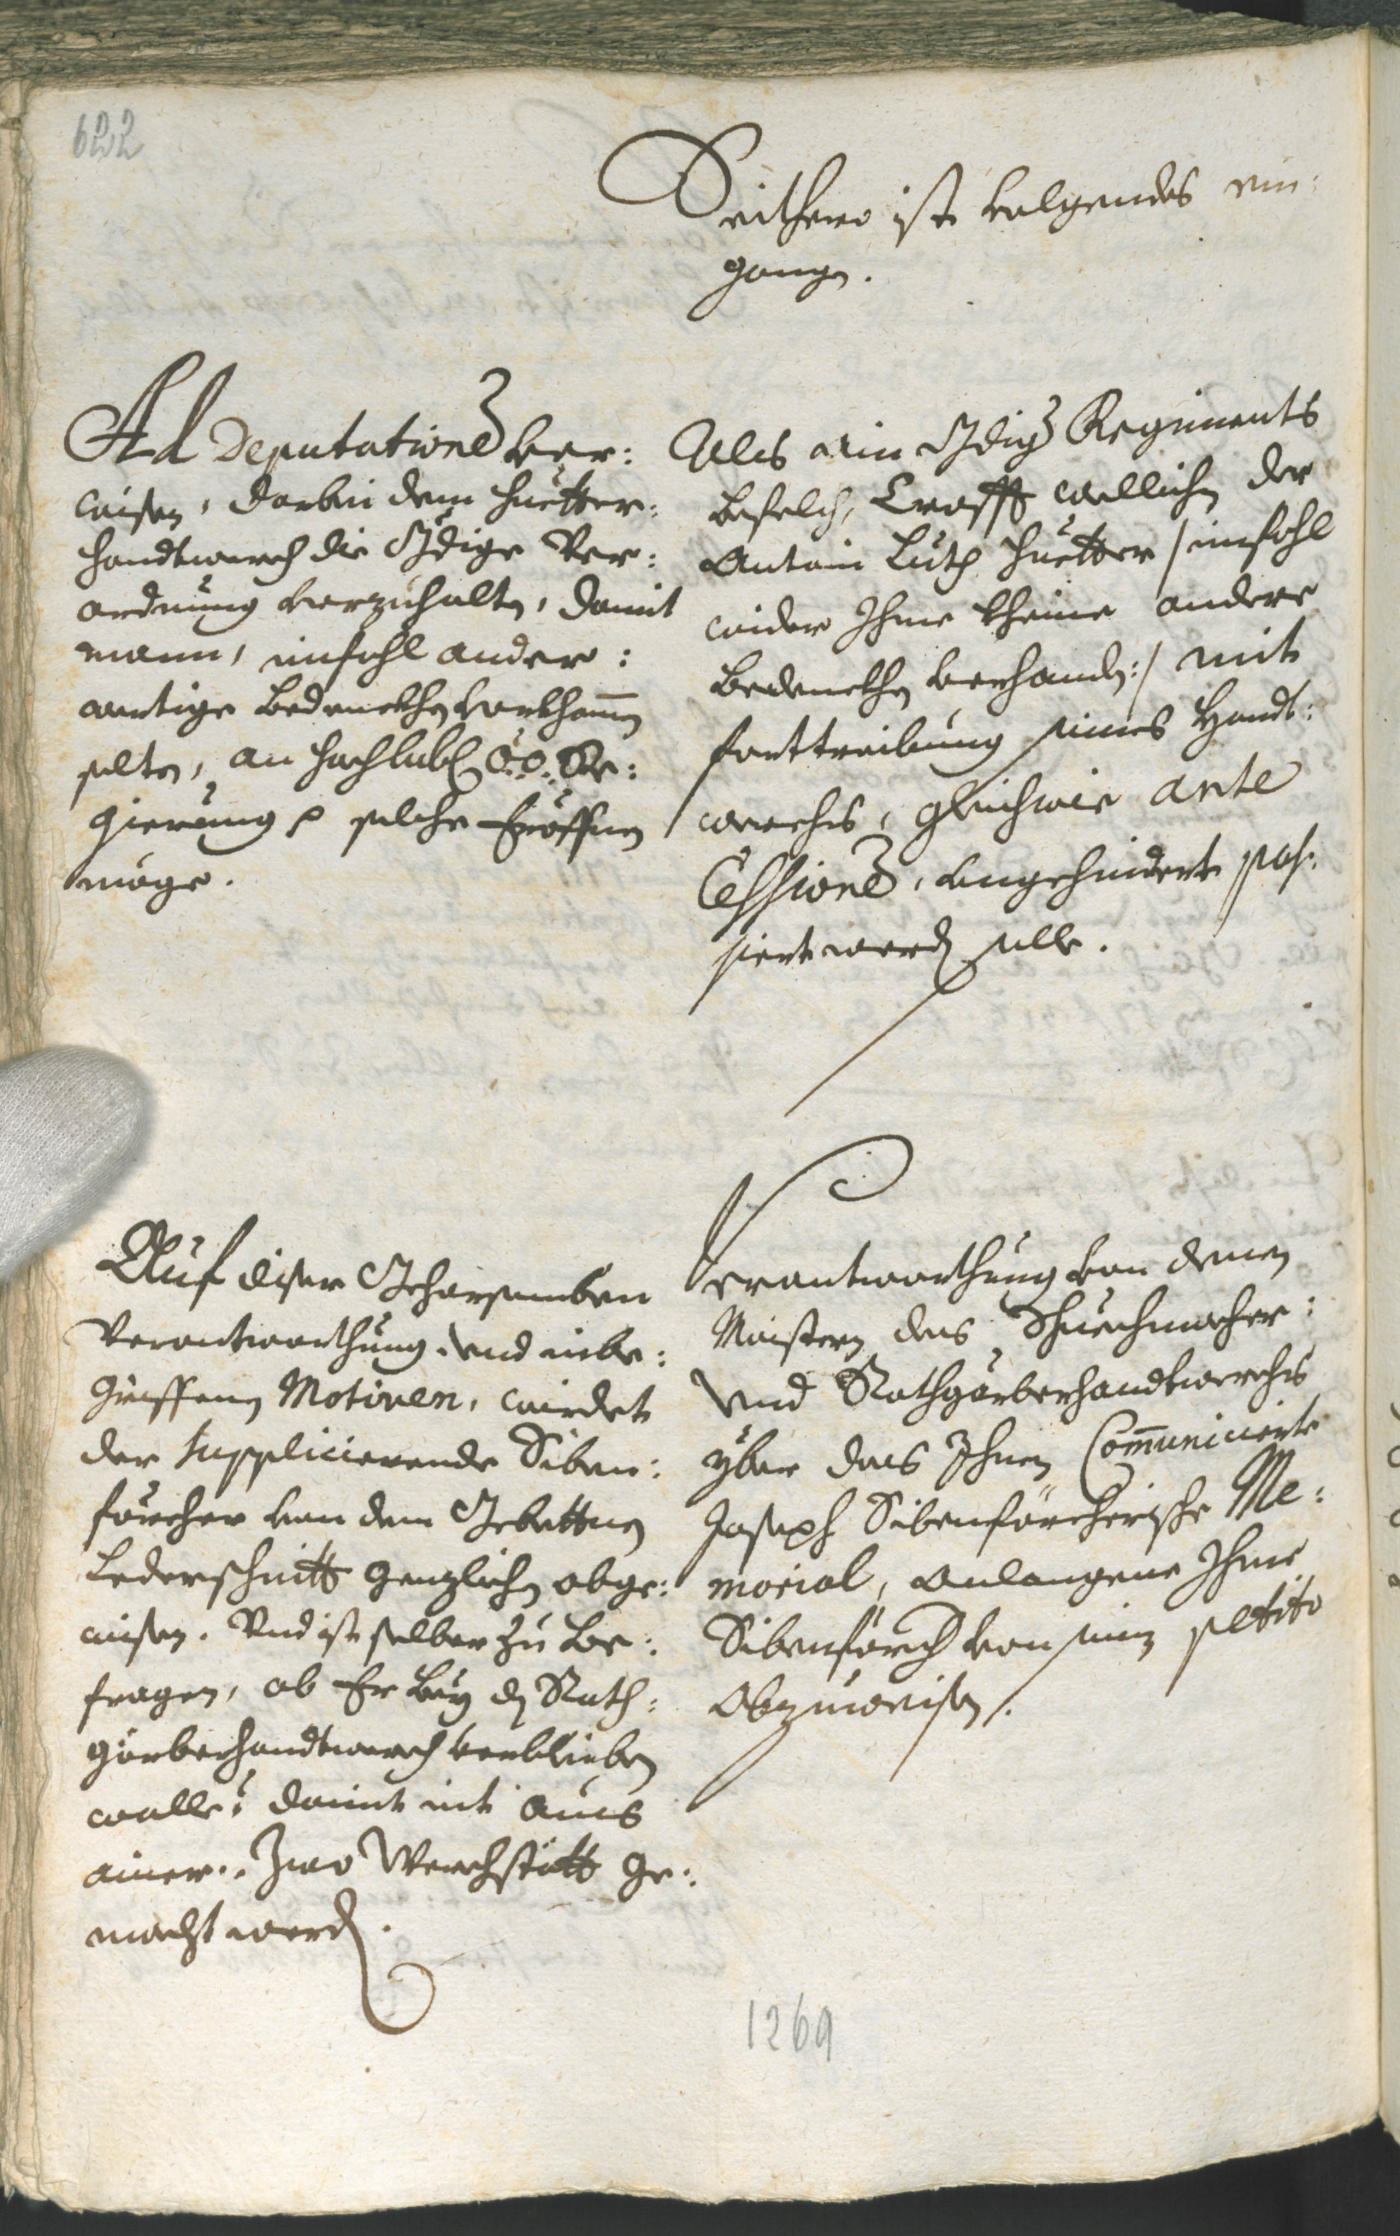 622
Seithero ist volgendes ein:
gangen.
Ad Deputatione͂ ver:
wisen, dabei dem Huetter:
handtwerch die Gdige Ver:
ordnung vorzuhalten, damit
mann, imfahl ander:
wertige Bedenckhen vorkhom̄en
solten, an hochlobl: O: Ö: Re:
gierung solche Eröffnen
möge.
Als ain Gdig Regiments
Befelch, Crafft wellichen der
Antoni Luth Huetter / imfahl
wider Ihme kheine andere
Bedenckhen verhanden: / mit
forttreibung seines Handt:
werchs, gleichwie ante
Cessione͂, ungehindert pas:
siert werden solle.
Auf diser Gehorsamben
Verantworthung und einbe:
griffenen Motiven, wirdet
der supplicierende Siben:
förcher von dem Gebettnen
Lederschnitt genzlichen abge:
wisen. Und ist selber zu be:
fragen, ob Er bey den Roth:
görberhandtwerch verbleiben
wolle? damit nit aus
ainer. Zwo Werchstätt ge:
macht werden.
Verantworthung von denen
Maistern des Schuechmacher:
und Rothgärberhandtwerchs
yber das Ihnen Com̄unicierte
Joseph Sibenförcherische Me:
morial, anlangene Ihme
Sibenförcher von seinem petito
abzuweisen.
1269